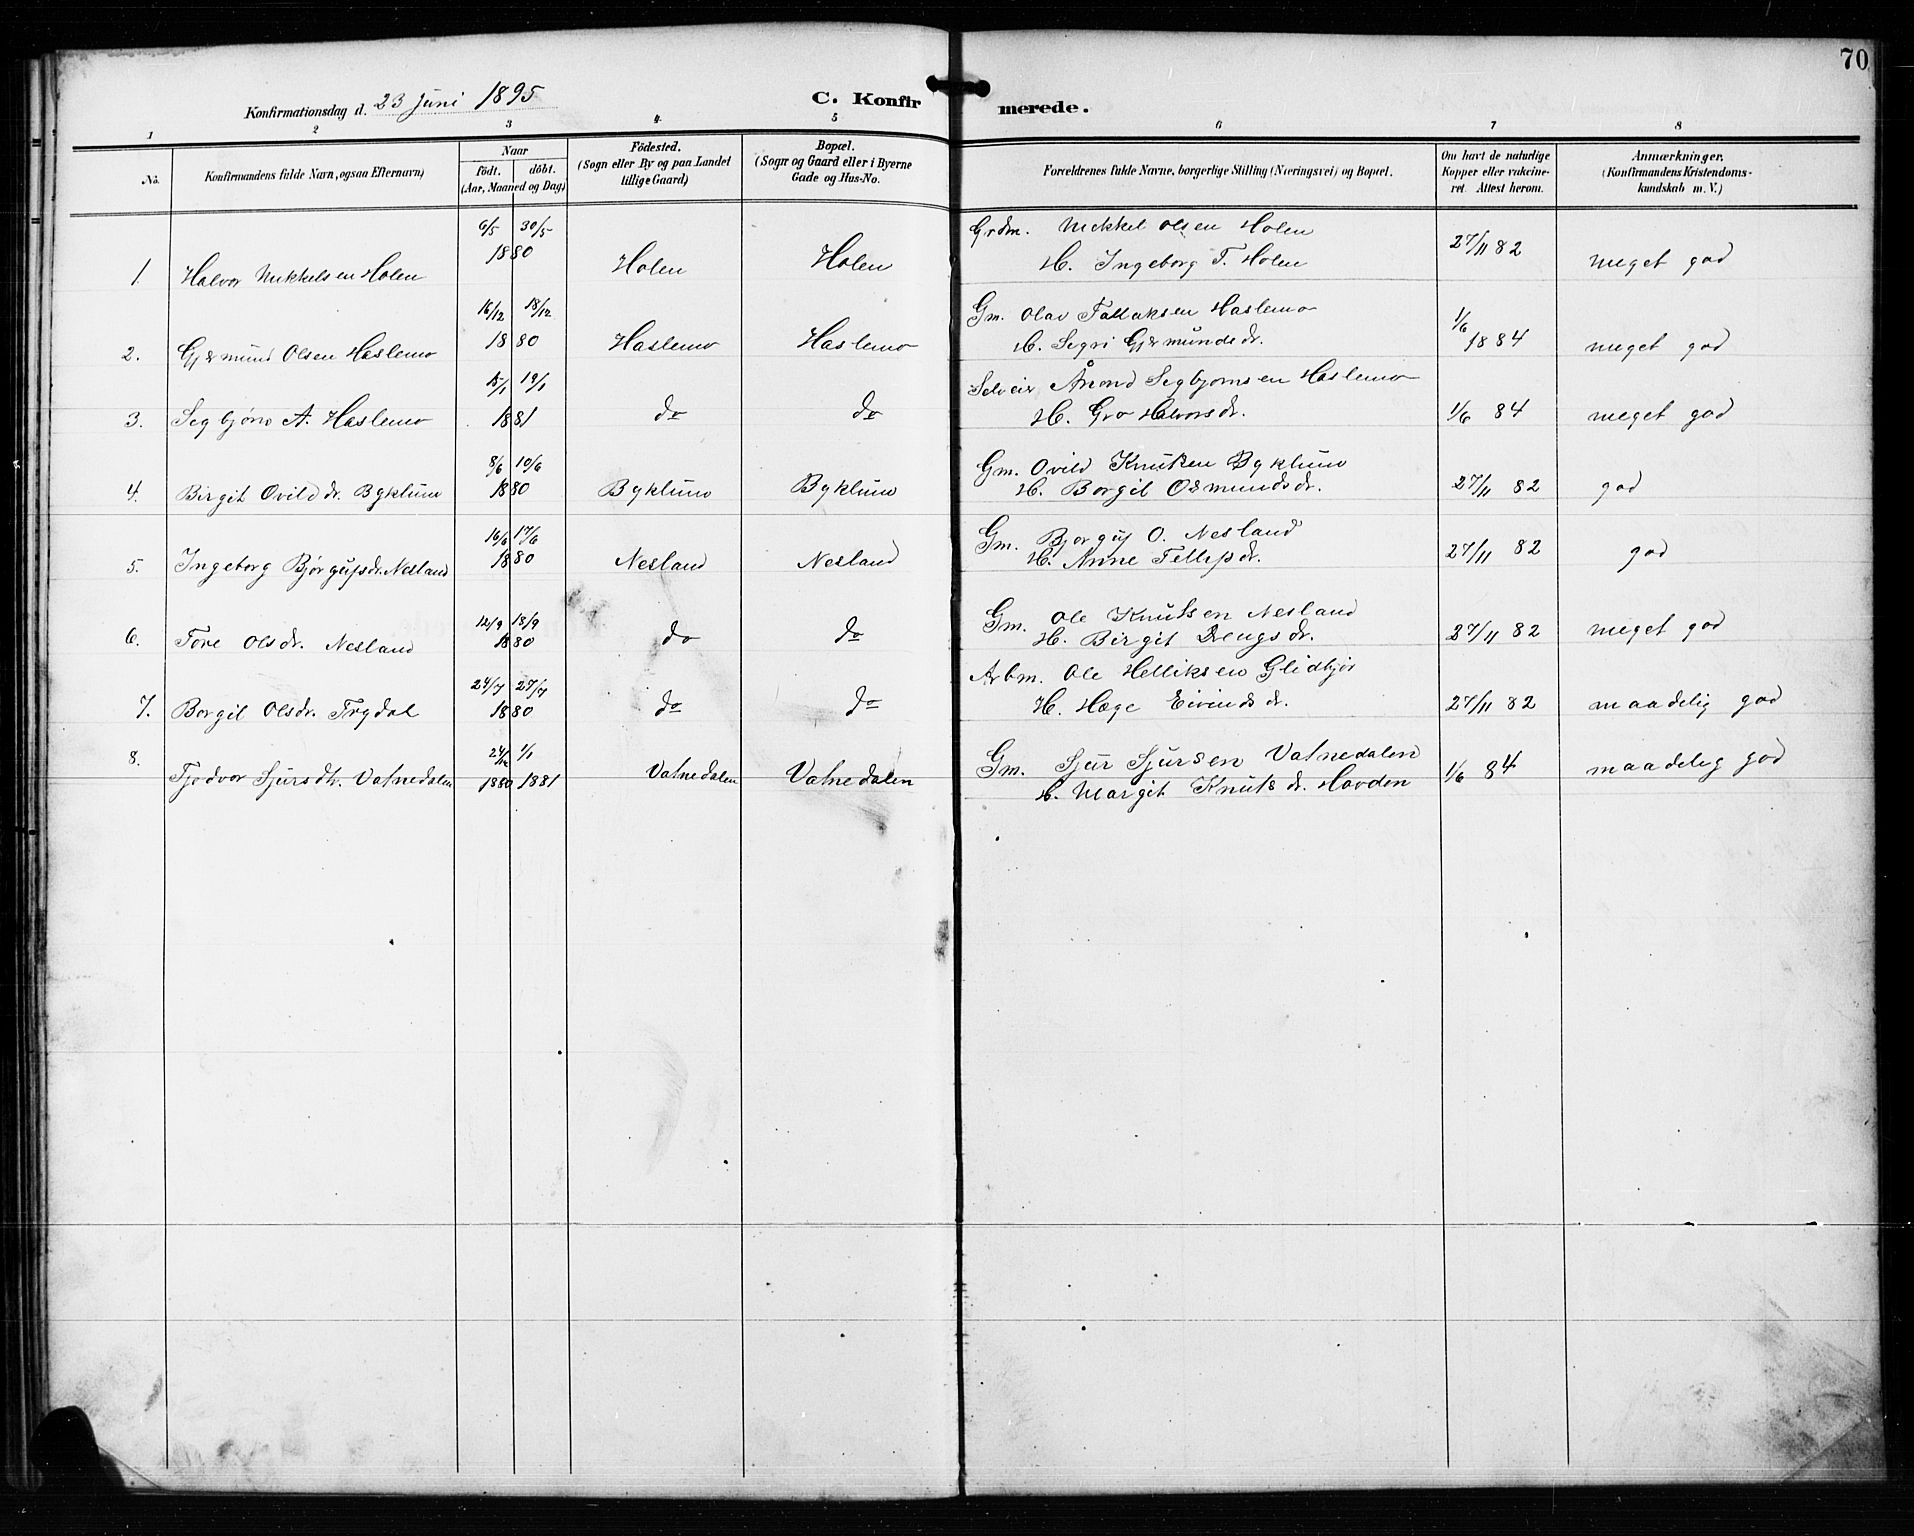 70
Konfirmationsdag d. 23 Juni 1895
C. Konfirmerede.
1 2 3 4 5 6 7 8
No.
Konfirmandens fulde Navn, ogsaa Efternavn)
Naar
födt. döbt.
(Aar, Maaned og Dag)
Födested.
(Sogn eller By og paa Landet
tillige Gaard)
Bopæl.
(Sogn og Gaard eller i Byerne
Gade og Hus-No.
Forældrenes fulde Navne, borgerlige Stilling (Næringsvei) og Bopæl.
Om havt de naturlige
Kopper eller vakcine-
ret. Attest herom.
Anmærkninger.
(Konfirmandens Kristendoms-
kundskab m. V.)
6/5 30/5 Grdm. Mikkel Olsen Holen
1. Halvor Mikkelsen Holen 1880 Holen Holen H. Ingeborg T. Holen 27/11 82 meget god
16/12 18/12 Gm. Olav Tallaksen Haslemo 1/6
2. Gjermund Olsen Haslemo 1880 Haslemo Haslemo H. Sigri Gjermundsdr. 1884 meget god
15/1 19/1 Selveier Ånond Segbjørnsen Haslemo
3. Segbjørn A. Haslemo 1881 do do H. Gro Halvorsdr. 1/6 84 meget god
8/6 10/6 Gm. Ovild Knutsen Byklum
4. Birgit Ovildsdr. Byklum 1880 Byklum Byklum H. Borgil Osmundsdr. 27/11 82 god
16/6 17/6 Gm. Bjørguf O. Nesland
5. Ingeborg Bjørgufsdr. Nesland 1880 Nesland Nesland H. Anne Fellefsdr. 27/11 82 god
12/9 18/9 Gm. Ole Knutsen Nesland
6. Tore Olsdr. Nesland 1880 do do H. Birgit Drengsdr. 27/11 82 meget god
24/7 27/7 Arbm. Ole Helliksen Glidbjør
7. Borgil Olsdr. Trydal 1880 do do H. Hæge Eivindsdr. 27/11 82 maadelig god
8. 24/12 1/1 Gm. Sjur Sjursen Vatnedalen
Tjodvor Sjursdtr. Vatnedalen 1880 1881 Vatnedalen Vatnedalen H. Margit Knutsdr. Hovden 1/6 84 maadelig god